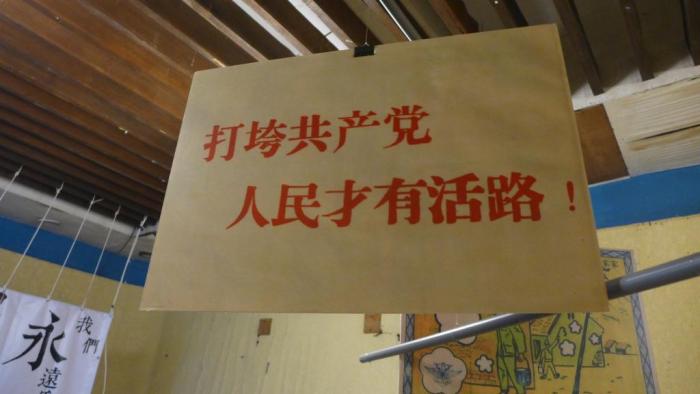 打垮共产党
人民才有活路！
我們
永遠